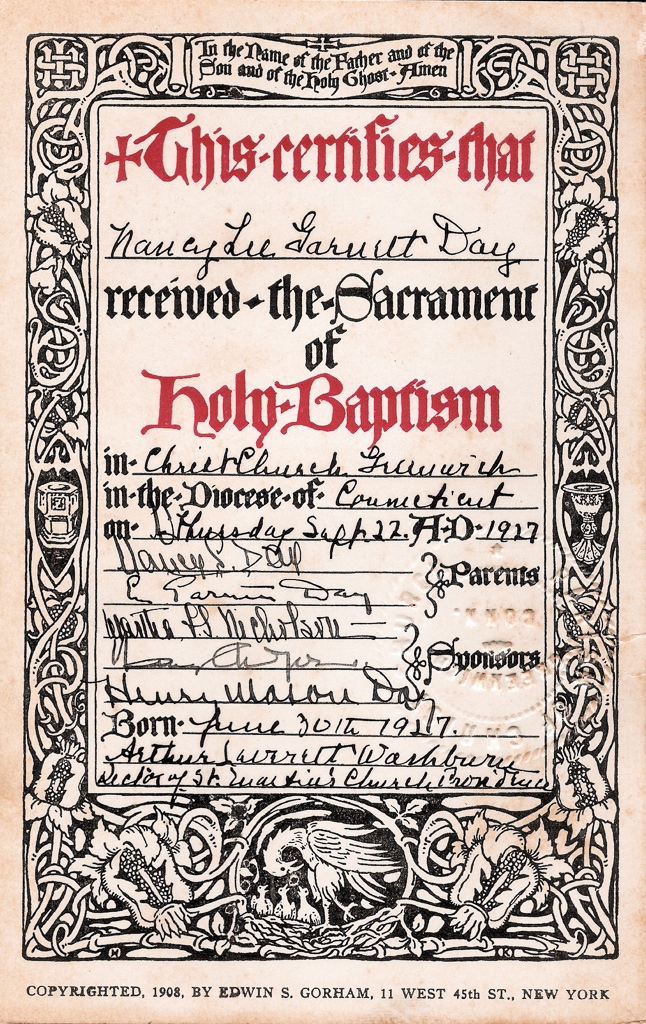 In the Name of the Father and of the
Son and of the Holy Ghost - Amen
This certifies that
Nancy Lee Garnett Day
received the Sacrament
of
Holy Baptism
in Christ Church Greenwich
in the Diocese of Connecticut
on Thursday Sept 22. A·D· 1927
Nancy L. Day
Day
Parents
Nicholson
Sponsors
Henry Mason Day
Born June 30th 1927.
Arthur Leverett Washburn
Rector of St. Martin's Church Providence
COPYRIGHTED, 1908, BY EDWIN S. GORHAM, 11 WEST 45th ST., NEW YORK